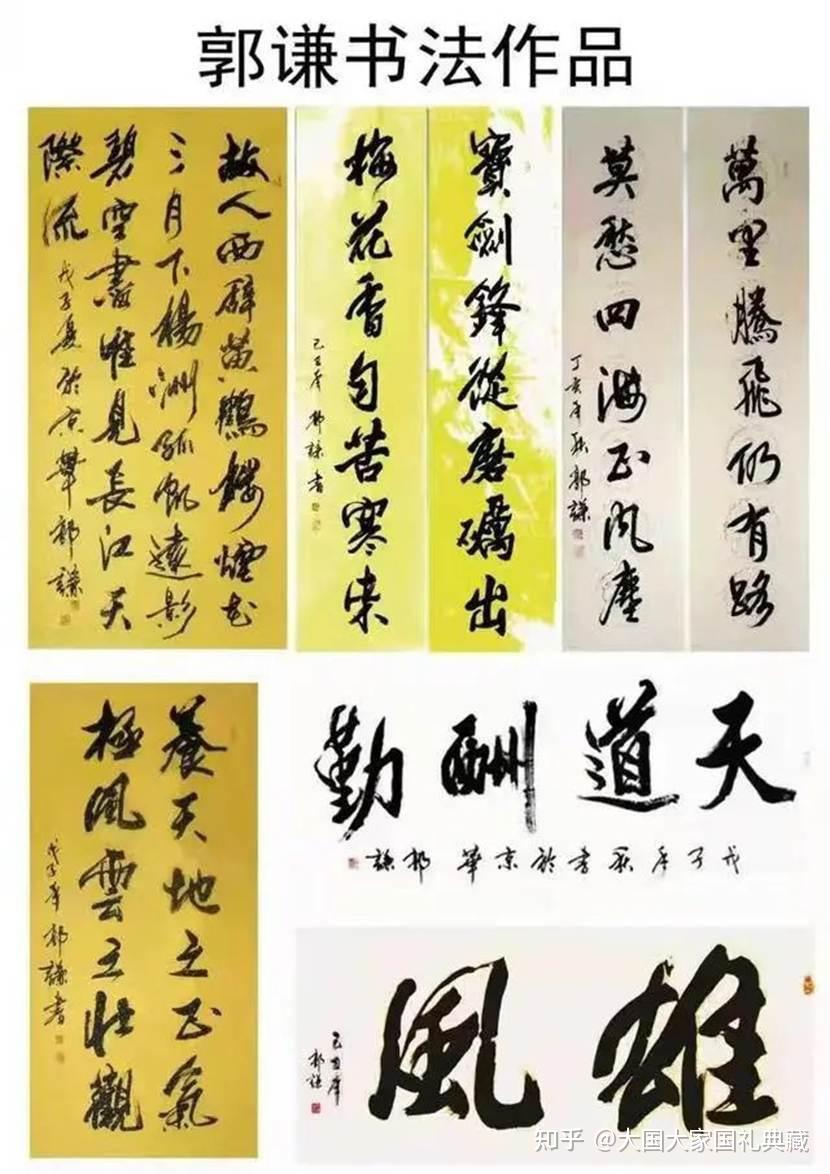 郭谦书法作品
故人西辞黄鶴樓煙花
三月下楊洲孤帆遠影
碧空盡唯見長江天
際流
戊子夏於京華郭謙
寶劍鋒從磨礪出
梅花香自苦寒来
己丑年郭謙書
萬里騰飛仍有路
莫愁四海正風塵
丁亥年秋郭謙
養天地之正氣
極風雲之壯觀
戊子年郭謙書
天道酬勤
戊子年秋書於京華郭謙
雄風
己丑年郭謙
知乎 @大国大家国礼典藏